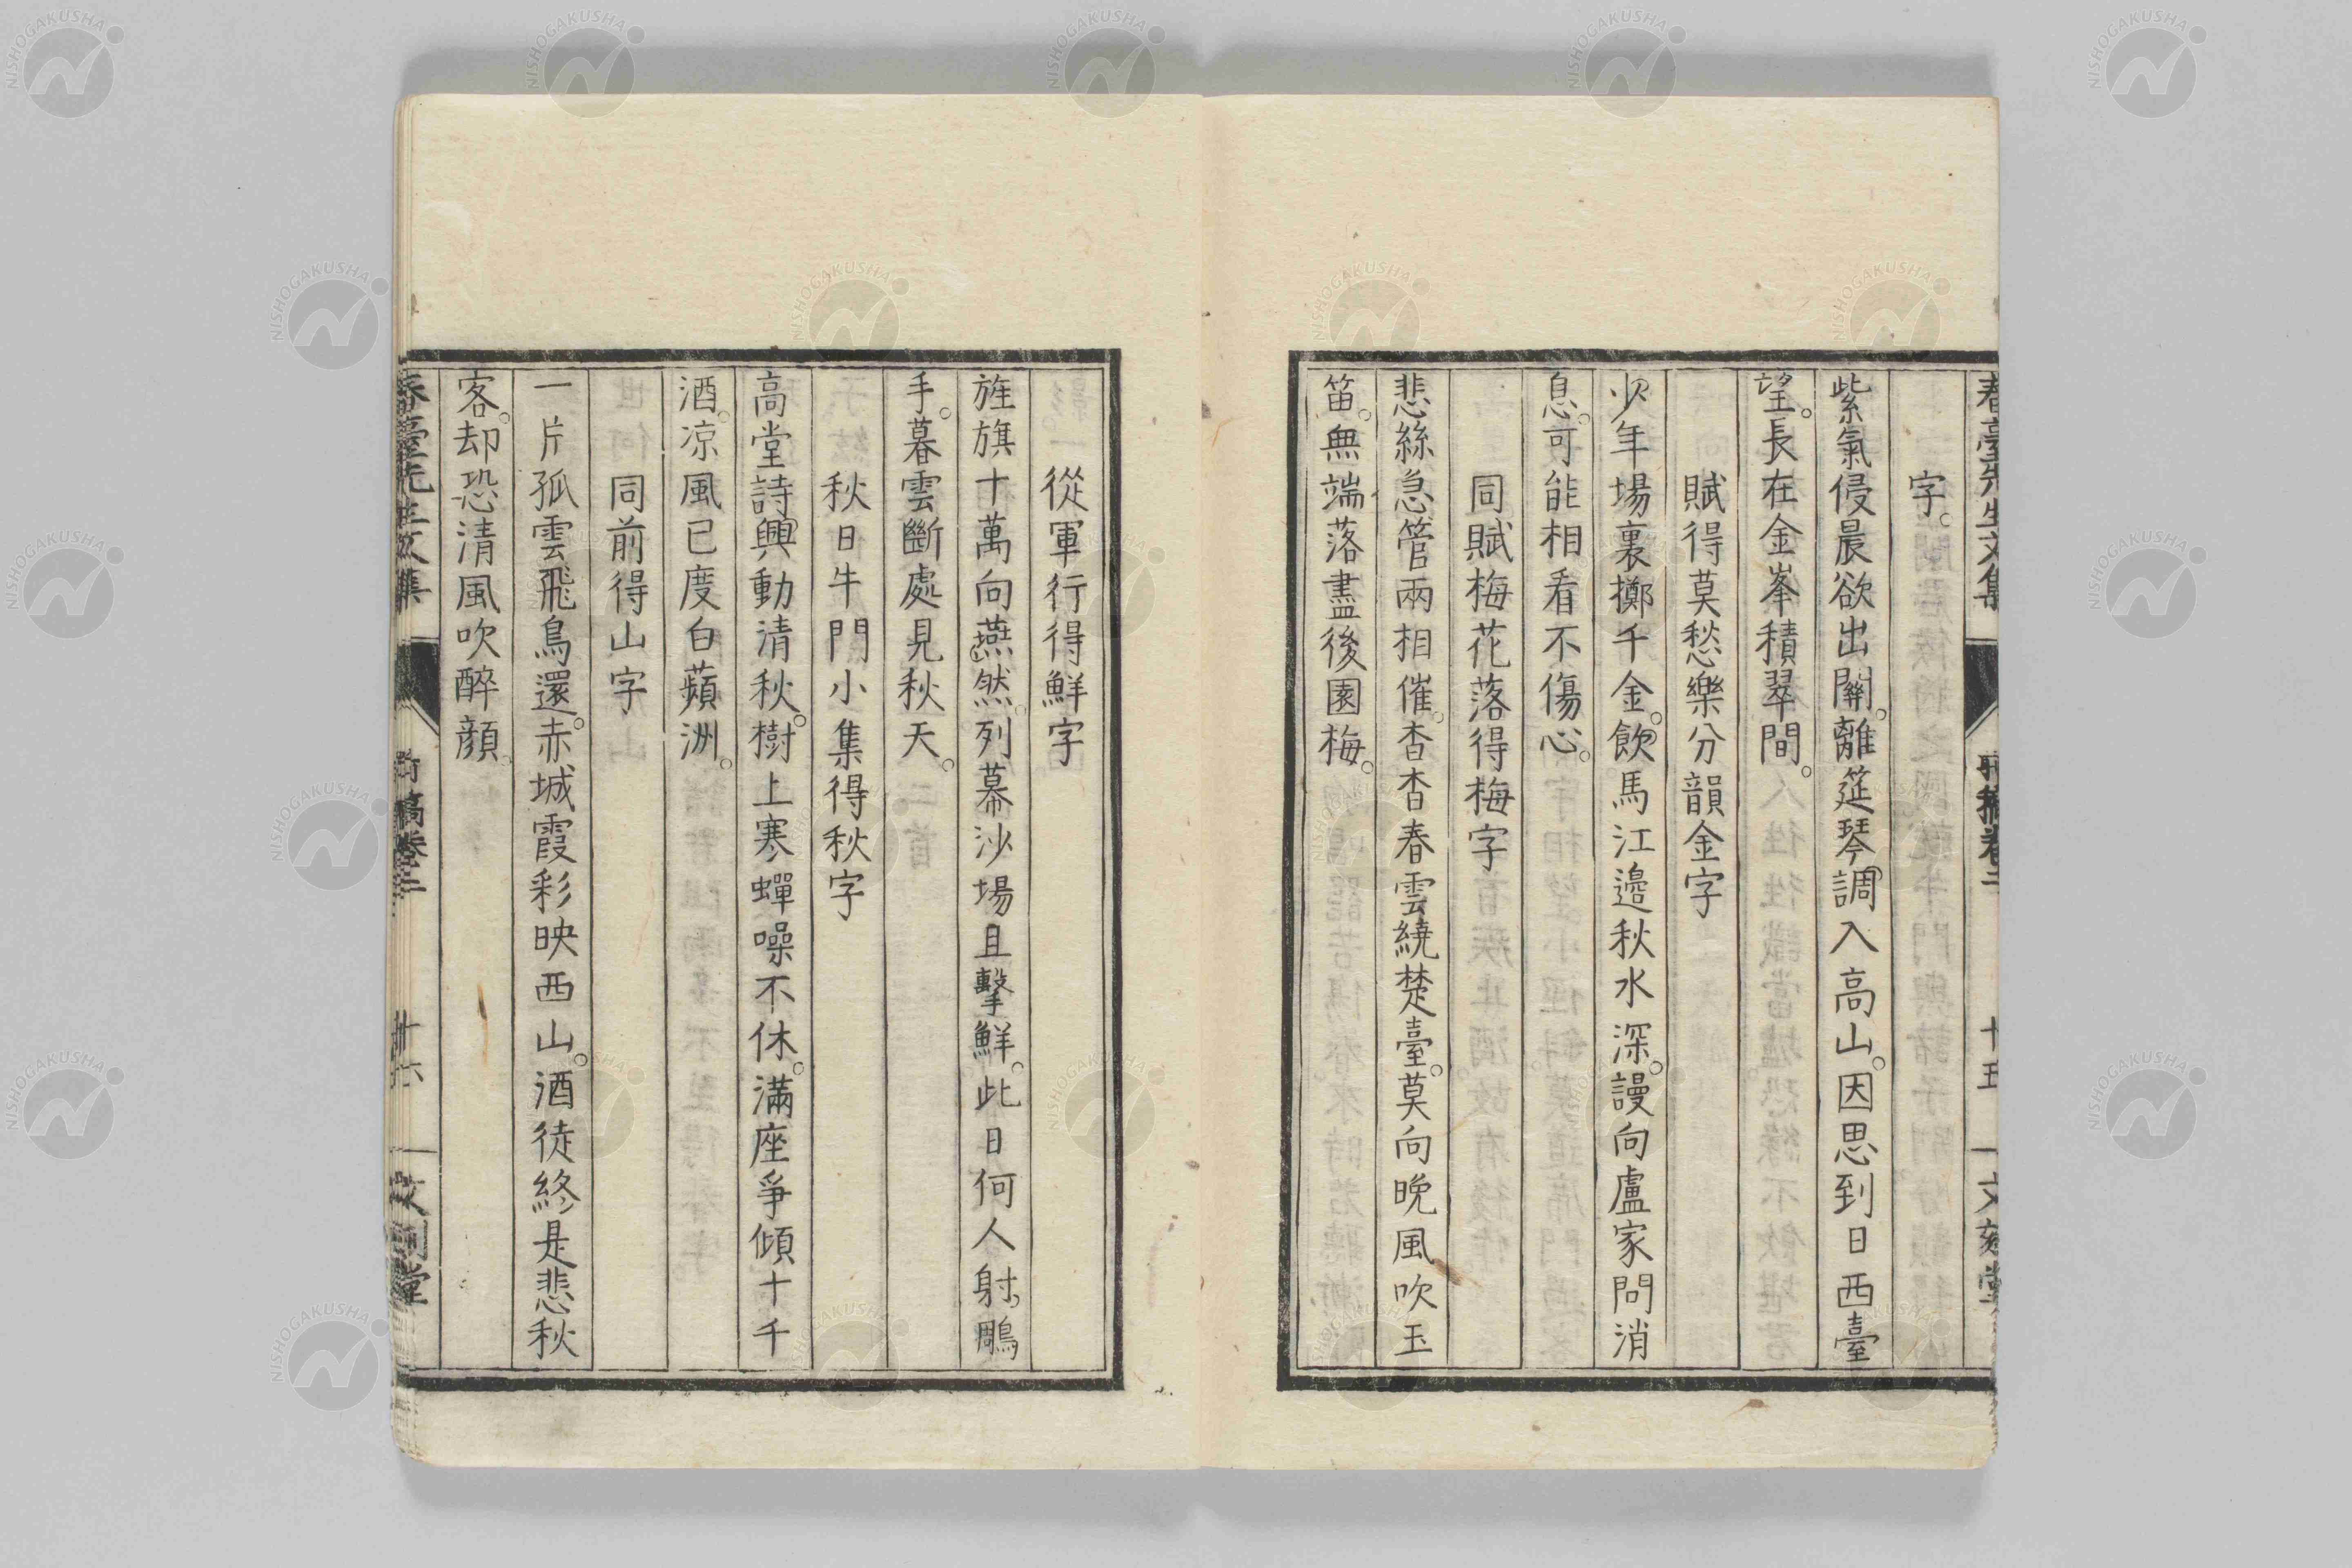 字
紫氣侵晨欲出關。離筵琴調入高山。因思到日西臺
望。長在金峯積翠間。
賦得莫愁樂分韻金字
少年場裏擲千金。飲馬江邊秋水深。謾向盧家問消
息。可能相看不傷心。
同賦梅花落得梅字
悲絲急管兩相催。杳杳春雲繞楚臺。莫向晚風吹玉
笛。無端落盡後園梅。
從軍行得鮮字
旌旗十萬向燕然。列幕沙場且擊鮮。此日何人射鵰
手。暮雲斷處見秋天。
秋日牛門小集得秋字
高堂詩興動清秋。樹上寒蟬噪不休。滿座爭傾十千
酒。凉風已度白蘋洲。
同前得山字
一片孤雲飛鳥還。赤城霞彩映西山。酒徒終是悲秋
客。却恐清風吹醉顔。
NISHOGAKUSHA